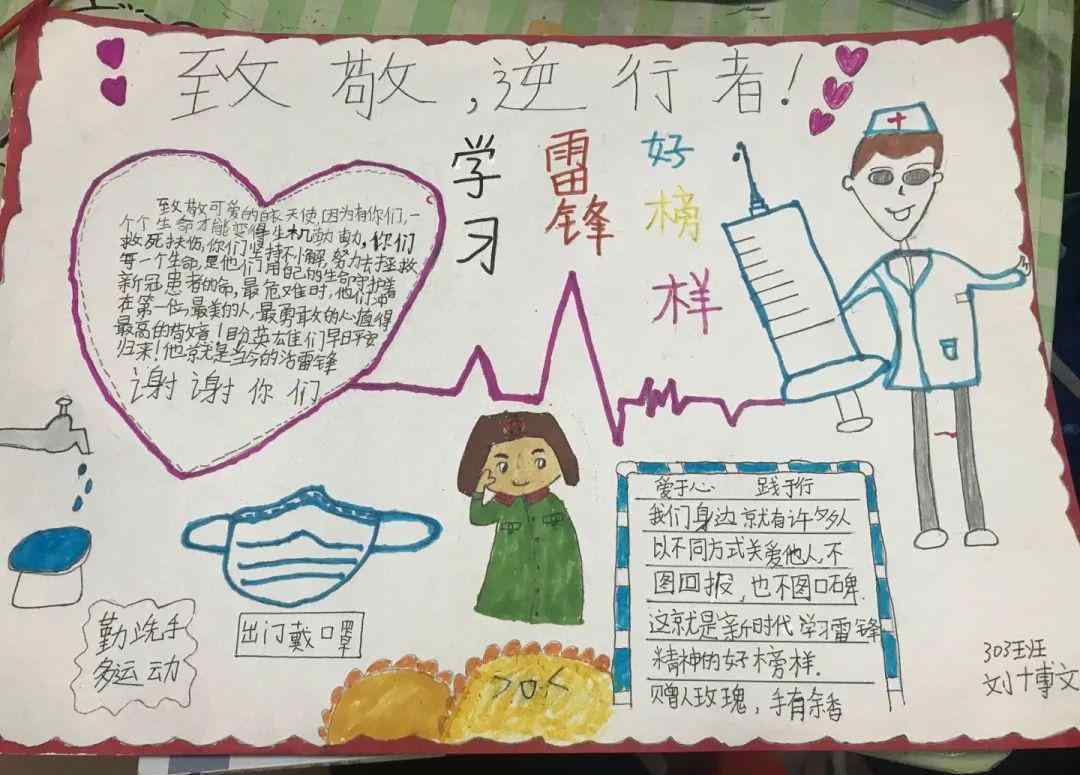 致敬,逆行者!
学习
雷锋
好榜样
致敬可爱的白衣天使,因为有你们,一
个个生命才能变得生机勃勃,你们
救死扶伤,你们坚持不懈,努力去拯救
每一个生命,是他们用自己的生命守护着
新冠患者的命,最危难时,他们冲
在第一位,最美的人,最勇敢的人,值得
最高的!盼英雄们早日平安
归来!他就是当今的活雷锋
谢谢你们
爱于心 践于行
我们身边就有许多人
以不同方式关爱他人,不
图回报,也不图口碑.
这就是新时代学习雷锋
精神的好榜样.
赠人玫瑰,手有余香
勤洗手
多运动
出门戴口罩
303班
刘博文